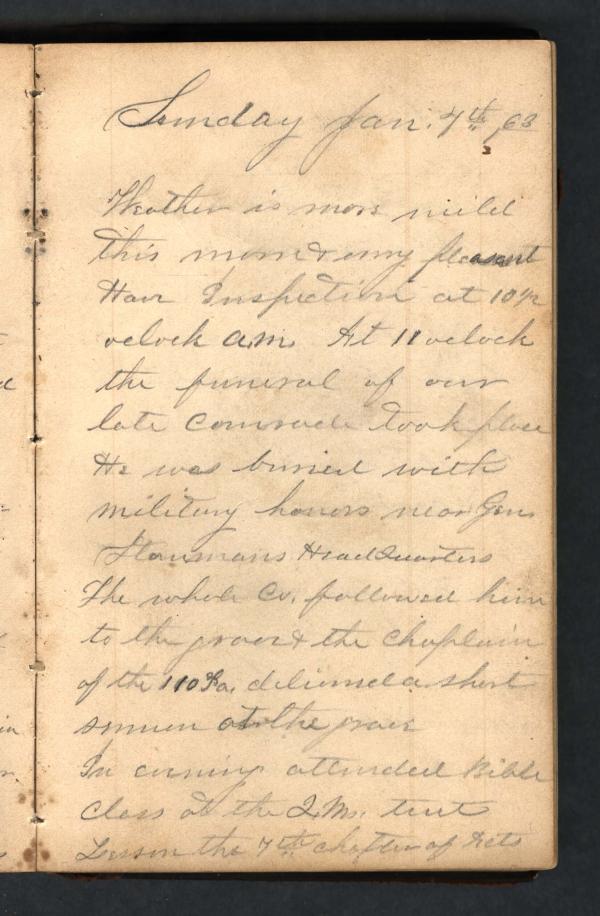 Sunday Jan. 4th, 63
Weather is more mild
this morn & very pleasant
Have Inspection at 10 1/2
oclock a.m. At 11 oclock
the funeral of our
late Comrade took place
He was buried with
military honors near Gen.
Headquarters
The whole Co. followed him
to the grave & the Chaplain
of the 110 Pa. delivered a short
sermon at the grave
In evening attended Bible
Class at the Q.M. tent
Lesson the 7th chapter of Acts